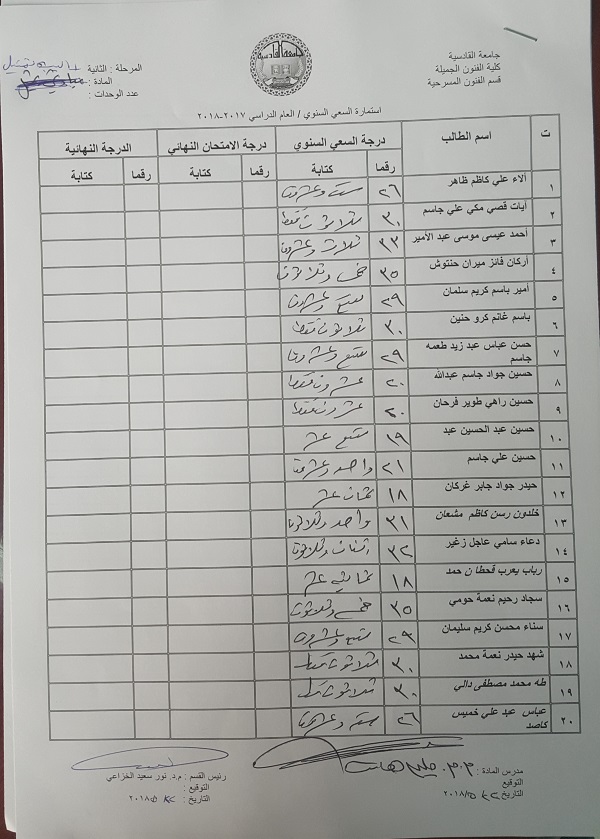 جامعة القادسية
كلية الفنون الجميلة
قسم الفنون المسرحية
جامعة القادسية
المرحلة : الثانية
المادة :
عدد الوحدات :
استمارة السعي السنوي / العام الدراسي ٢٠١٧-٢٠١٨
ت اسم الطالب درجة السعي السنوي درجة الامتحان النهائي الدرجة النهائية
رقما كتابة رقما كتابة رقما كتابة
١ آلاء علي كاظم ظاهر ٢٦ ستة وعشرون
٢ آيات قصي مكي علي جاسم ٣٠ ثلاثون فقط
٣ أحمد عيسى موسى عبد الأمير ثلاث وعشرون
٤ أركان فائز ميران حنتوش ٣٥ خمس وثلاثون
٥ أمير باسم كريم سلمان ٢٩ تسع وعشرون
٦ باسم غانم كرو حنين ٣٠ ثلاثون فقط
٧ حسن عباس عبد زيد طعمه جاسم ٢٩ تسع وعشرون
٨ حسين جواد جاسم عبدالله ٢٠ عشرون فقط
٩ حسين راهي طوير فرحان ٢٠ عشرون فقط
١٠ حسين عبد الحسين عبد ١٩ تسع عشر
١١ حسين علي جاسم ٢١ واحد وعشرون
١٢ حيدر جواد جابر غركان ١٨ ثمان عشر
١٣ خلدون رسن كاظم مشعان ٣١ واحد وثلاثون
١٤ دعاء سامي عاجل زغير ٣٢ اثنان وثلاثون
١٥ رباب يعرب قحطان حمد ١٨ ثماني عشر
١٦ سجاد رحيم نعمة حومي ٣٥ خمس وثلاثون
١٧ سناء محسن كريم سليمان ٢٩ تسع وعشرون
١٨ شهد حيدر نعمة محمد ٣٠ ثلاثون فقط
١٩ طه محمد مصطفى دالي ٣٠ ثلاثون فقط
٢٠ عباس عبد علي خميس كاصد ٢٦ ستة وعشرون
مدرس المادة : م.م.
التوقيع
التاريخ ٢٠١٨/٥/
رئيس القسم : م.د. نور سعيد الخزاعي
التوقيع :
التاريخ : ٢٠١٨/٥/